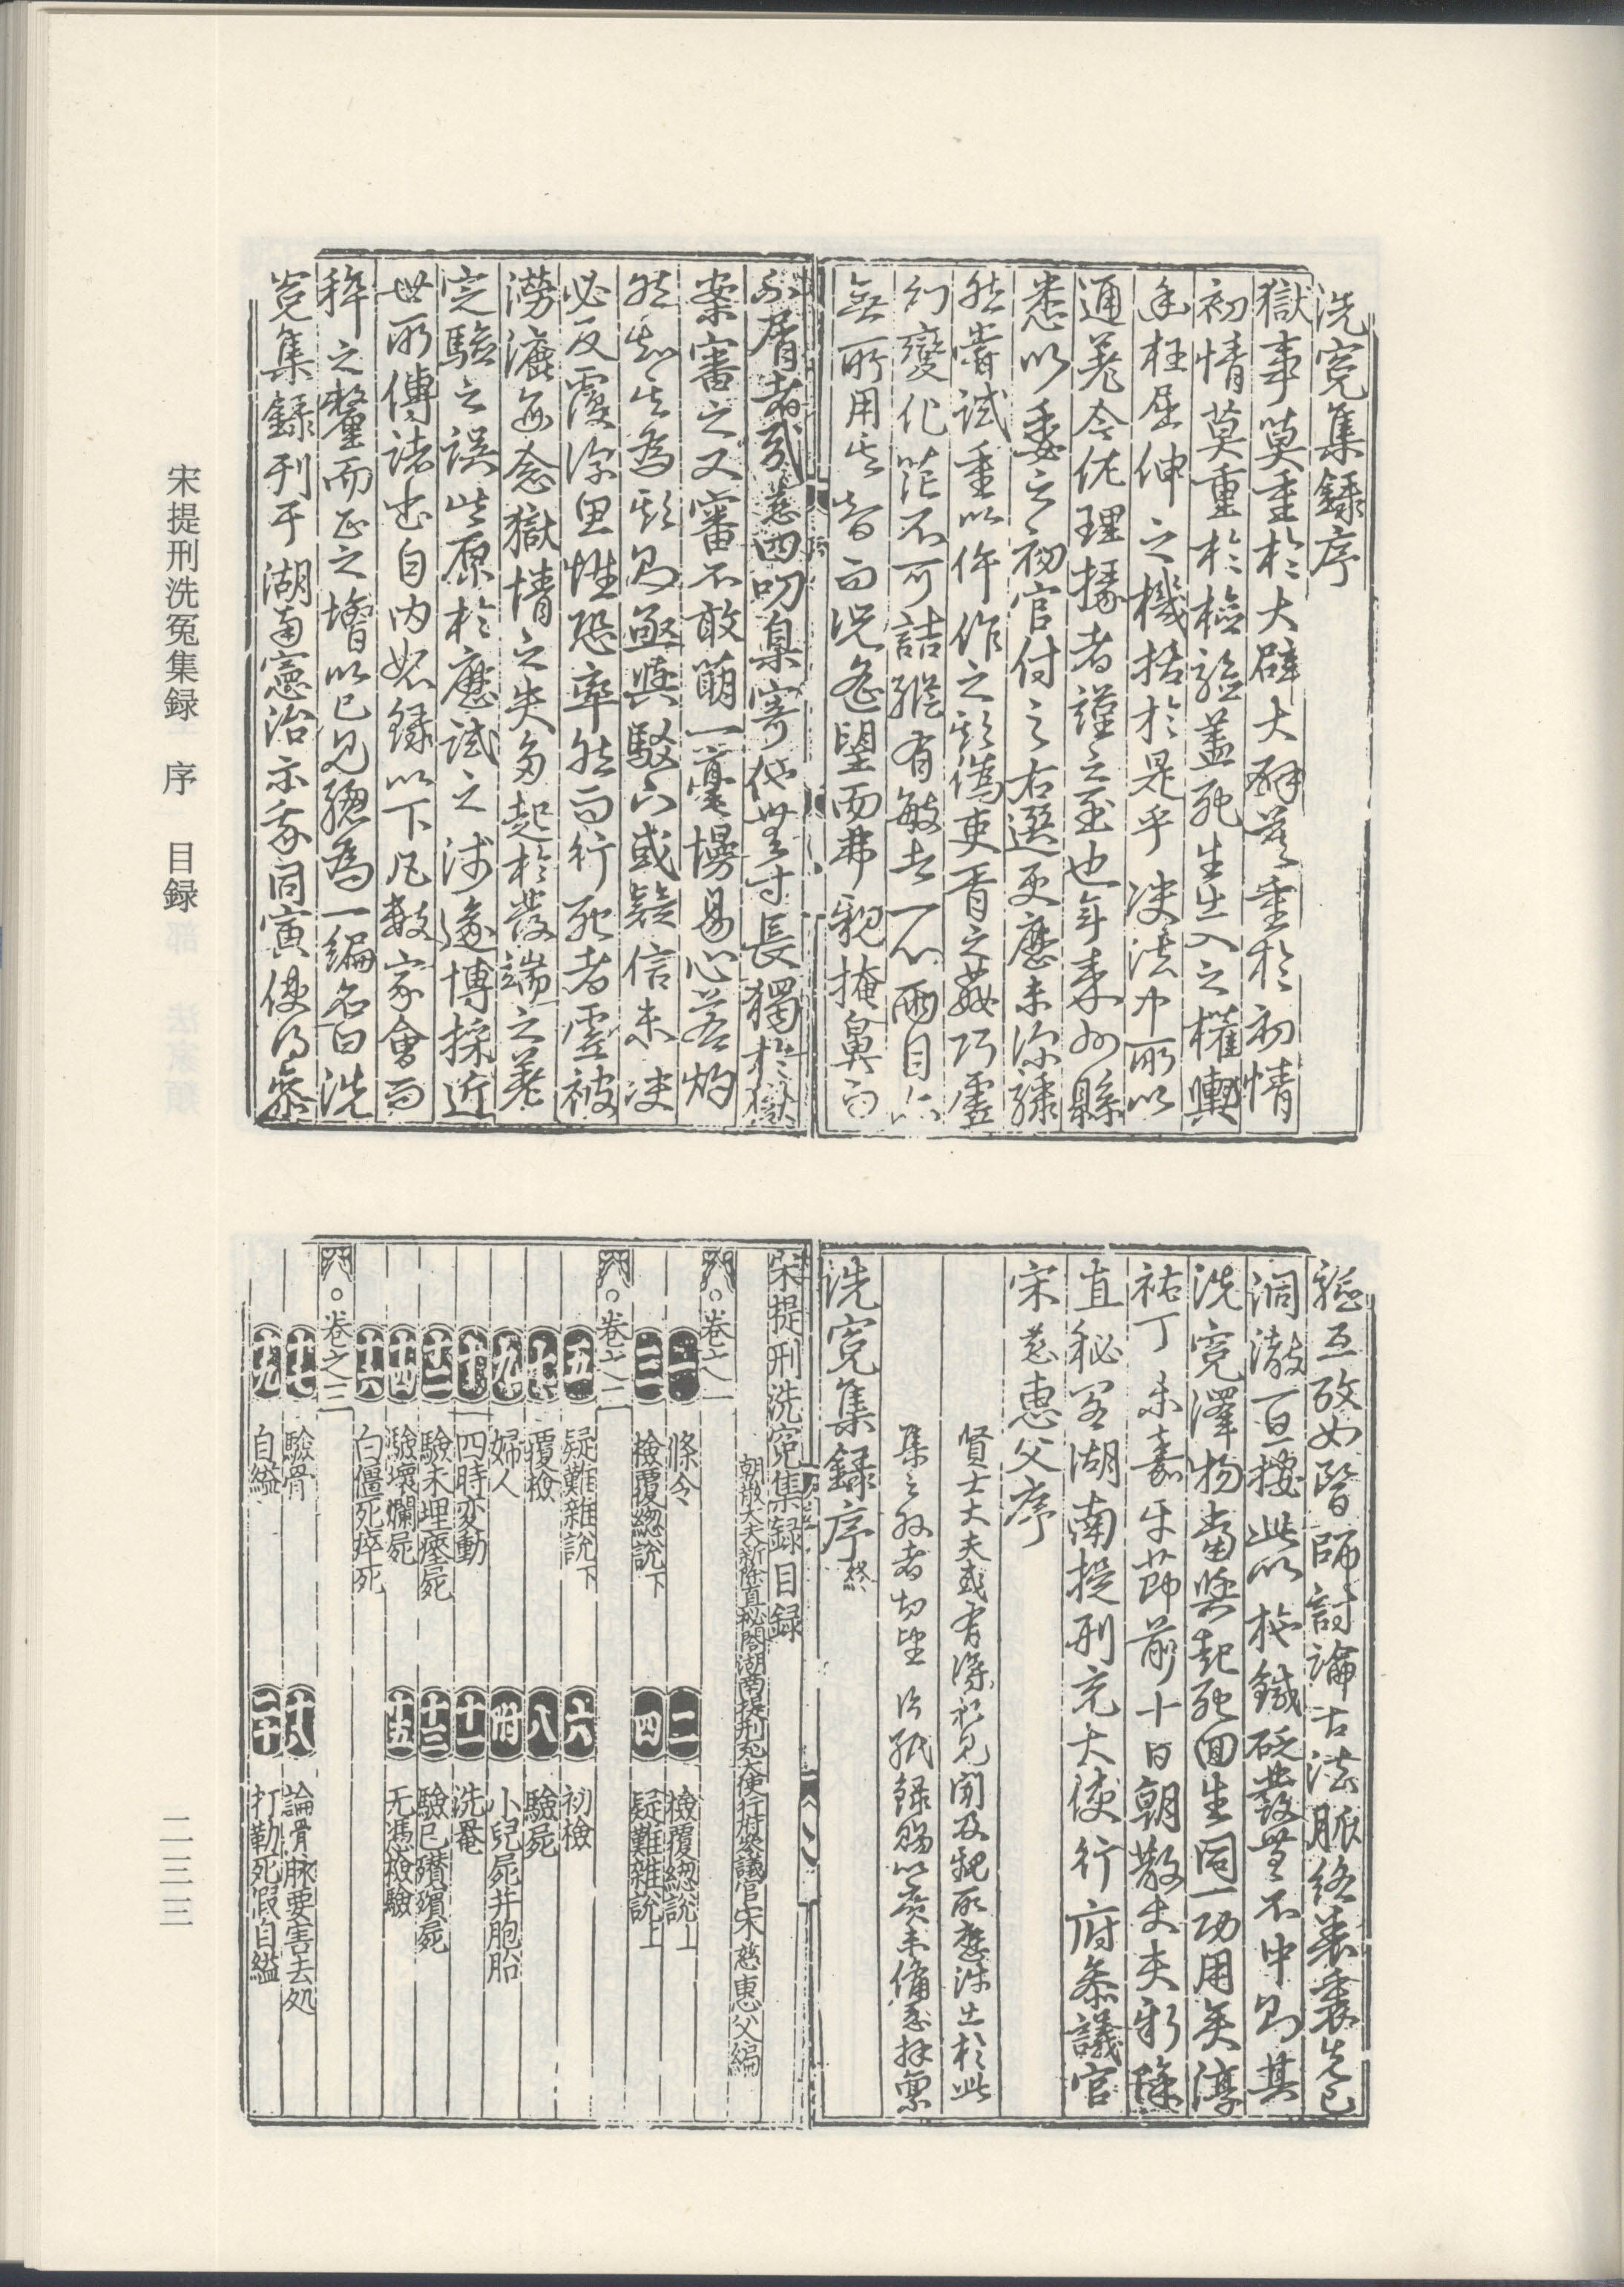 洗寃集録序
獄事莫重於大辟大辟莫重於初情
初情莫重於檢驗盖死生出入之權輿
幽枉屈伸之機括於是乎决法中所以
通差令佐理掾者謹之至也年来州縣
悉以委之初官付之右選更歷未深驟
然嘗試重以仵作之欺僞吏胥之姦巧虛
幻變化茫不可詰縱有敏者一心兩目亦
無所用其智而况遙望而弗親掩鼻而
不屑者哉慈四叨臬寄他無寸長獨於獄
案審之又審不敢萌一毫慢易心若灼
然知其為欺則亟與駁下或疑信未决
必反覆深思惟恐率然而行死者虛被
澇漉每念獄情之失多起於發端之差
定驗之誤皆原於歷試之淺遂博採近
世所傳諸書自内恕録以下凡數家會而
稡之釐而正之增以已見總為一編名曰洗
寃集録刋于湖南憲治示我同寅使得參
驗互攷如醫師討論古法脈絡表裏先已
洞澈一旦按此以施鍼砭發無不中則其
洗寃澤物當與起死回生同一功用矣淳
祐丁未嘉平節前十日朝散大夫新除
直秘閣湖南提刑充大使行府參議官
宋慈惠父序
賢士大夫或有得於見聞及親所歷涉出於此
集之外者切望片紙録賜以廣未備慈拜禀
洗寃集録序 終
宋提刑洗寃集録目録
朝散大夫新除直秘閣湖南提刑充大使行府參議官宋慈惠父編
○卷之一
一 條令
二 檢覆緫說上
三 檢覆緫說下
四 疑難雜說上
○卷之二
五 疑難雜說下
六 初檢
七 覆檢
八 驗屍
九 婦人
附 小兒屍并胞胎
十 四時変動
十一 洗罨
十二 驗未埋瘞屍
十三 驗已殯殯屍
十四 驗壞爛屍
十五 无憑檢驗
十六 白僵死瘁死
○卷之三
十七 驗骨
十八 論骨脉要害去処
十九 自縊
二十 打勒死假自縊
宋提刑洗冤集録 序 目録
二三三